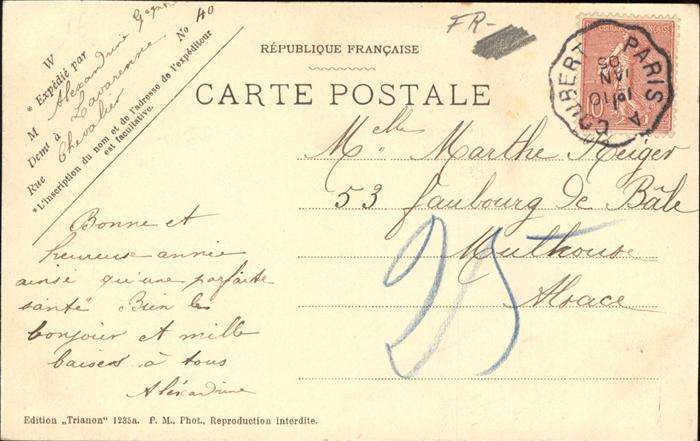 FR-
RÉPUBLIQUE FRANÇAISE
CARTE POSTALE
M
* Expédié par
Alexandrine
M
Demt à Lavarenne
Rue Chevalier No 40
*L'inscription du nom et de l'adresse de l'expéditeur
est facultative.
PARIS A
COUBERT
Melle Marthe
53 faubourg de Bâle
Mulhouse
Alsace
25
Bonne et
heureuse année
ainsi qu'une parfaite
santé Bien le
bonjour et mille
baisers à tous
Alexandrine
Edition „Trianon" 1235a. P. M., Phot., Reproduction interdite.